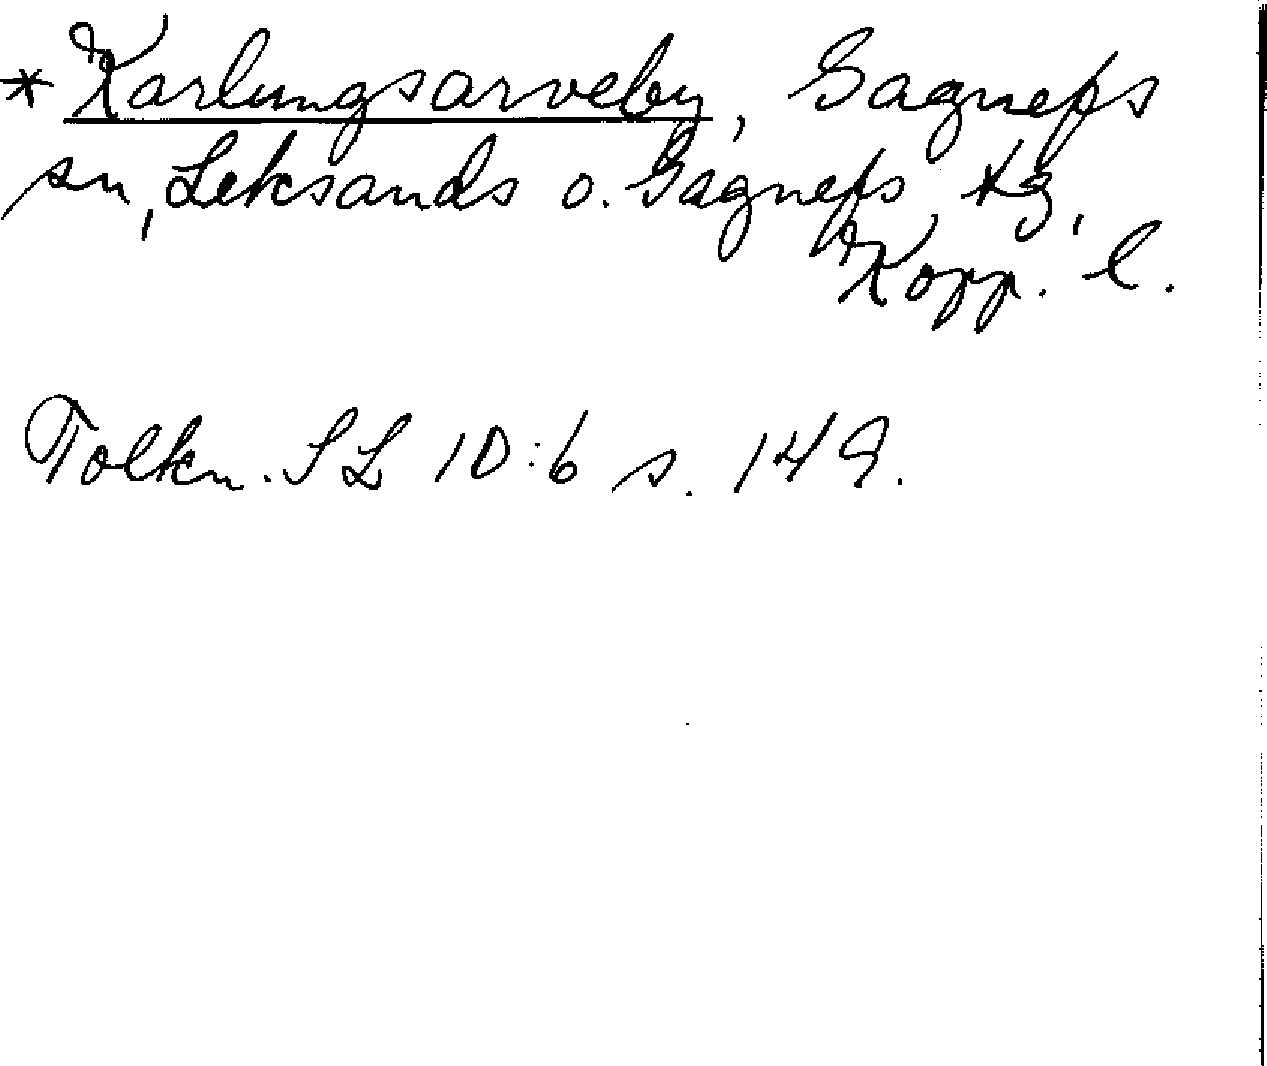 * Karlungsarveby, Gagnefs
sn, Leksands o. Gagnefs tg,
Kopp. l.
Tolkn. SL 10:6 s. 149.